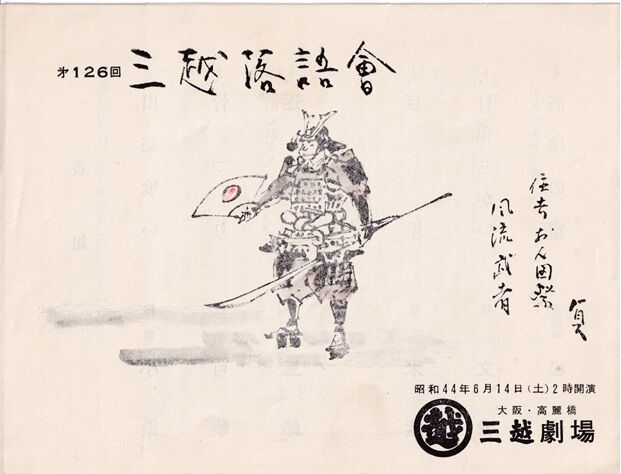 第126回
三越落語會
住吉おん田祭
風流武者
昭和44年6月14日(土)2時開演
大阪・高麗橋
越
三越劇場